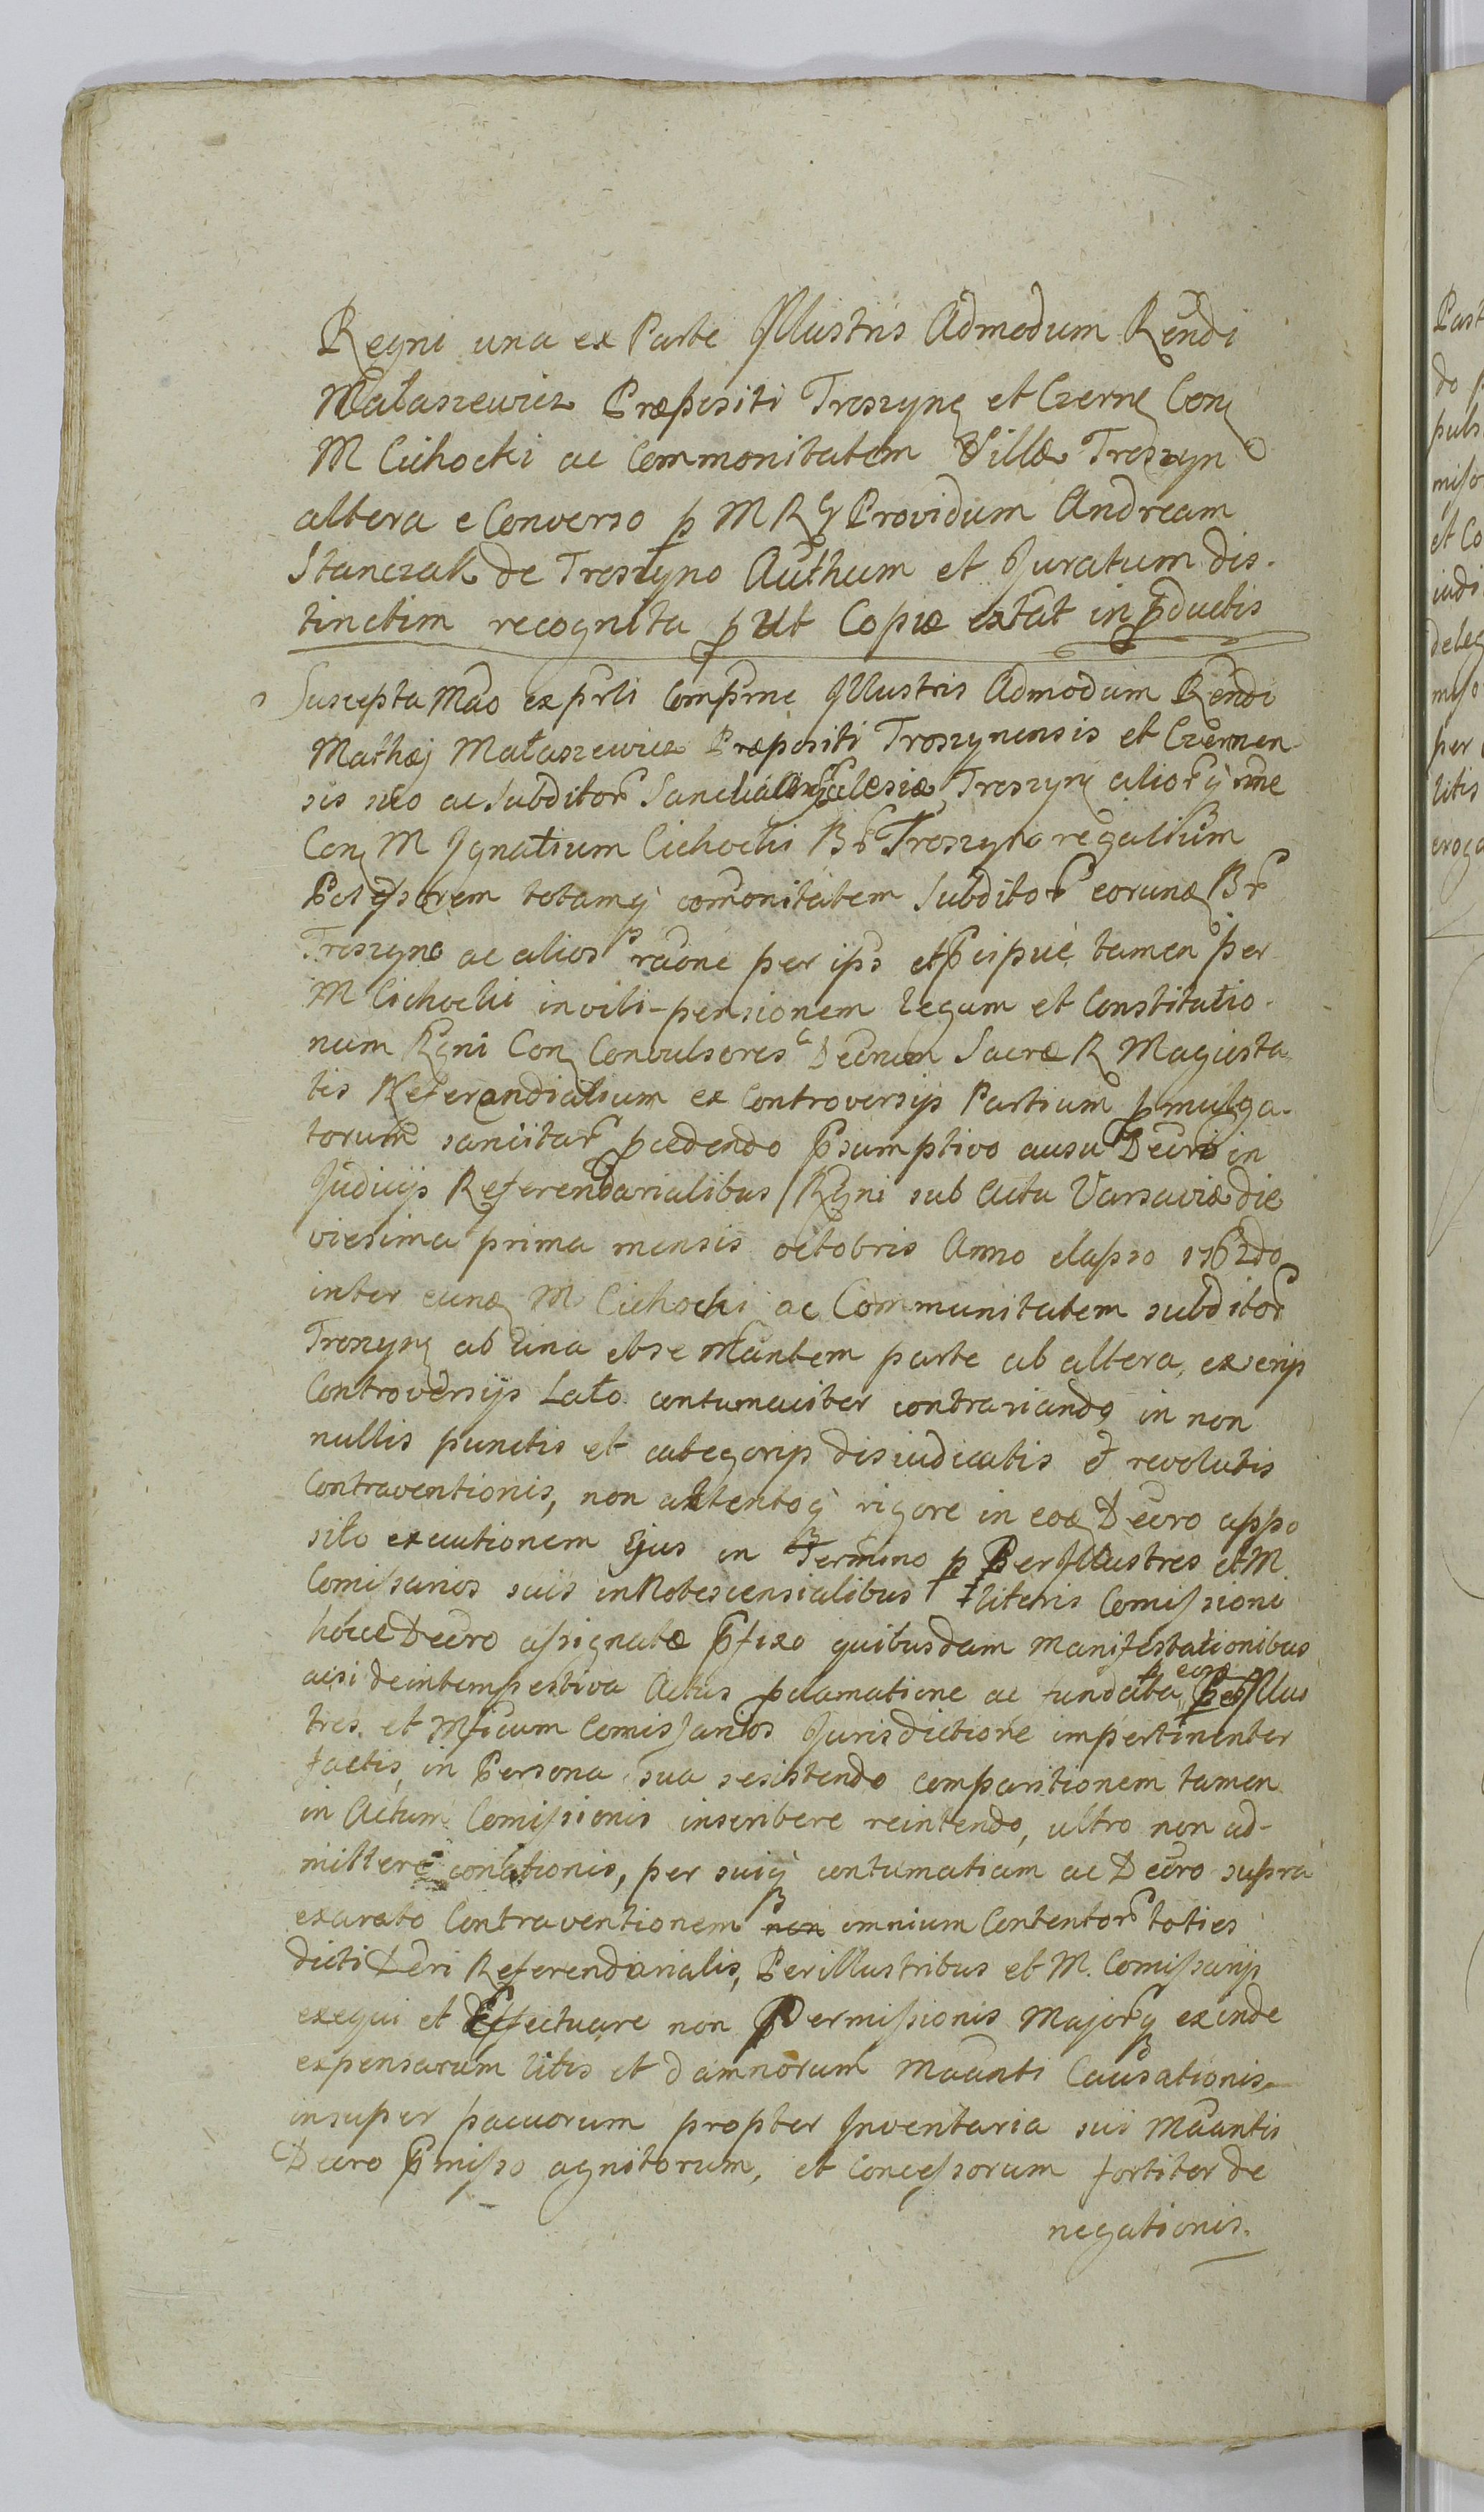 Regni una ex Parte Jllustris Admodum Rendi
Małaszewicz Præpositi Troszyne et Czerne Con
M Cichocki ac Commonitatem Villæ Troszyn
altera e Converso p M R G Providum Andream
Stanczak de Troszyno Authum et Juratum dis-
tinctim recognita put Copiæ extat in pductis
Suscepta Mao ex prli Comprne Jllustris Admodum Rendi
Mathæj Małaszewicz Præpositi Troszynensis et Czernen
sis suo ac Subditor Ecclesiæ Troszyne alior
Con M Jgnatium Cichocki Br Troszyno regalium
Possessorem totamq comonitatem Subditor eorunq Br
Troszyno ac alios raone per ips et pcipue tamen per
M Cichocki in vili-pensionem legum et Constitutio-
num Rgni Con Convulsores Decrum Sacræ R Magiesta-
tis Referendialium ex Controversijs Partium pmulga-
torum sancitar pcedendo psumptivo ausu Decris in
Judicijs Referendarialibus Rgni sub Actu Varsaviæ die
vicesima prima mensis octobris Anno elapso 1762do
inter eunq M Cichocki ac Communitatem subditor
Troszyne ab una et se Mantem parte ab altera, ex erijs
Controversijs Lato contumaciter contrariando in non
nullis punctis et categorijs disiudicatis et revolutis
Contraventionis, non attentoq rigore in eoq Decro appo
sito executionem Ejus in Termino p Per Jllustres et M
Comissarios suis innotescensialibus literis Comissioni
hocce Decro assignatæ pfixo quibusdam Manifestationibus
acsi de intempestiva Actus pclamatione ac fundata eorq Per Jllus
tres et Mficum Comissarios Jurisdictione impertinenter
factis, in Persona sua sesistendo comparitionem tamen
in Actum Comissionis inscribere reintendo, ultro non ad-
mittere conationis, per suiq contumatiam ac Decro supra
exarato Contraventionem non omnium Contentor toties
dicti Decri Referendarialis, Perillustribus et M. Comissarijs
exequi et Effectuare non Permissionis Majorq exinde
expensarum litis et damnorum Maanti Causationis
insuper pacuorum propter Jnventaria sui Maantis
Decro pmisso agnitorum, et Concessorum fortiter de
negationis.
Part
do p
pub
miso
et Co
iudi
deleg
miso
per
litis
eroga